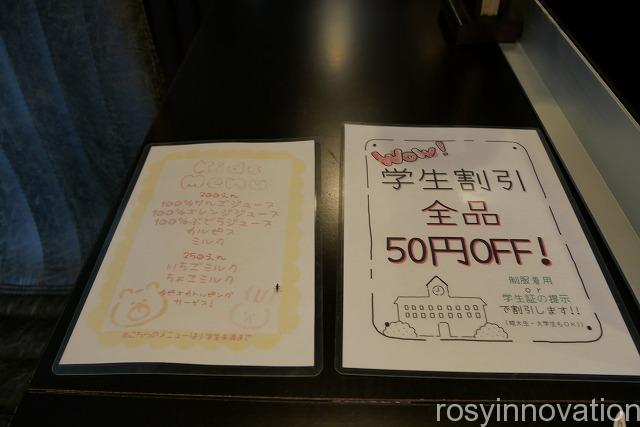 Kids
Menu
200えん
100%りんごジュース
100%オレンジジュース
100%ぶどうジュース
カルピス
ミルク
250えん
いちごミルク
ちょこミルク
サービス!
※こちらのメニューは小学生未満まで
WOW!
学生割引
全品
50円OFF!
制服着用
or
学生証の提示
で割引します!!
(短大生・大学生もOK!)
rosyinnovation